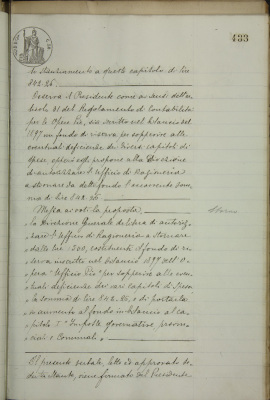 433
lo stanziamento a questo capitolo di lire
842.25.
Osserva il Presidente come a sensi dell'ar
ticolo 31 del Regolamento di Contabilità
per le Opere Pie, sia iscritto nel bilancio del
1897 un fondo di riserva per sopperire alle
eventuali deficienze dei diversi capitoli di
spesa, epperciò egli propone alla Direzione
di autorizzare l'Ufficio di Ragioneria
a stornare da detto fondo l'occorrente som
ma di lire 842.25
Messa ai voti la proposta
Storno
la Direzione Generale delibera di autoriz
zare l'Ufficio di Ragioneria a stornare
dalle lire costituenti il fondo di ri
serva inscritto nel bilancio 1897 dell'O
pera "Ufficio Pio" per sopperire alle even
tuali deficienze dei vari capitoli di spesa
la somma di lire 842.25, e di portarla
in aumento al fondo in bilancio al ca
pitolo "Imposte governative, provin
ciali e Comunali".
Il presente verbale, letto ed approvato se
duta stante, viene firmato dal Presidente